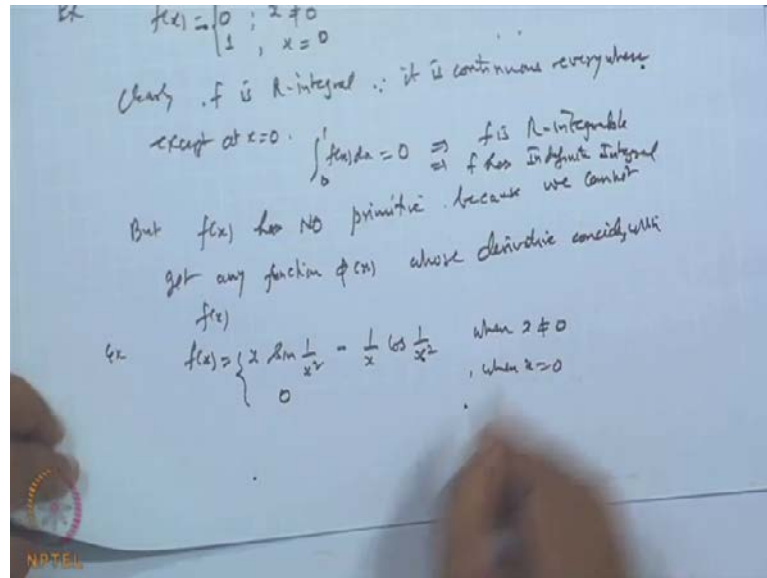 Ex f(x) = { 0 ; x ≠ 0
1 , x = 0
Clearly . f is R-integral ∵ it is continuous everywhere
except at x=0 . ∫₀¹ f(x)dx = 0 ⇒ f is R-integrable
⇒ f has Indefinite Integral
But f(x) has NO primitive . because we cannot
get any function ϕ(x) whose derivative coincides with
f(x)
Ex f(x) = { x sin 1/x² - 1/x cos 1/x² when x ≠ 0
0 , when x=0
NPTEL